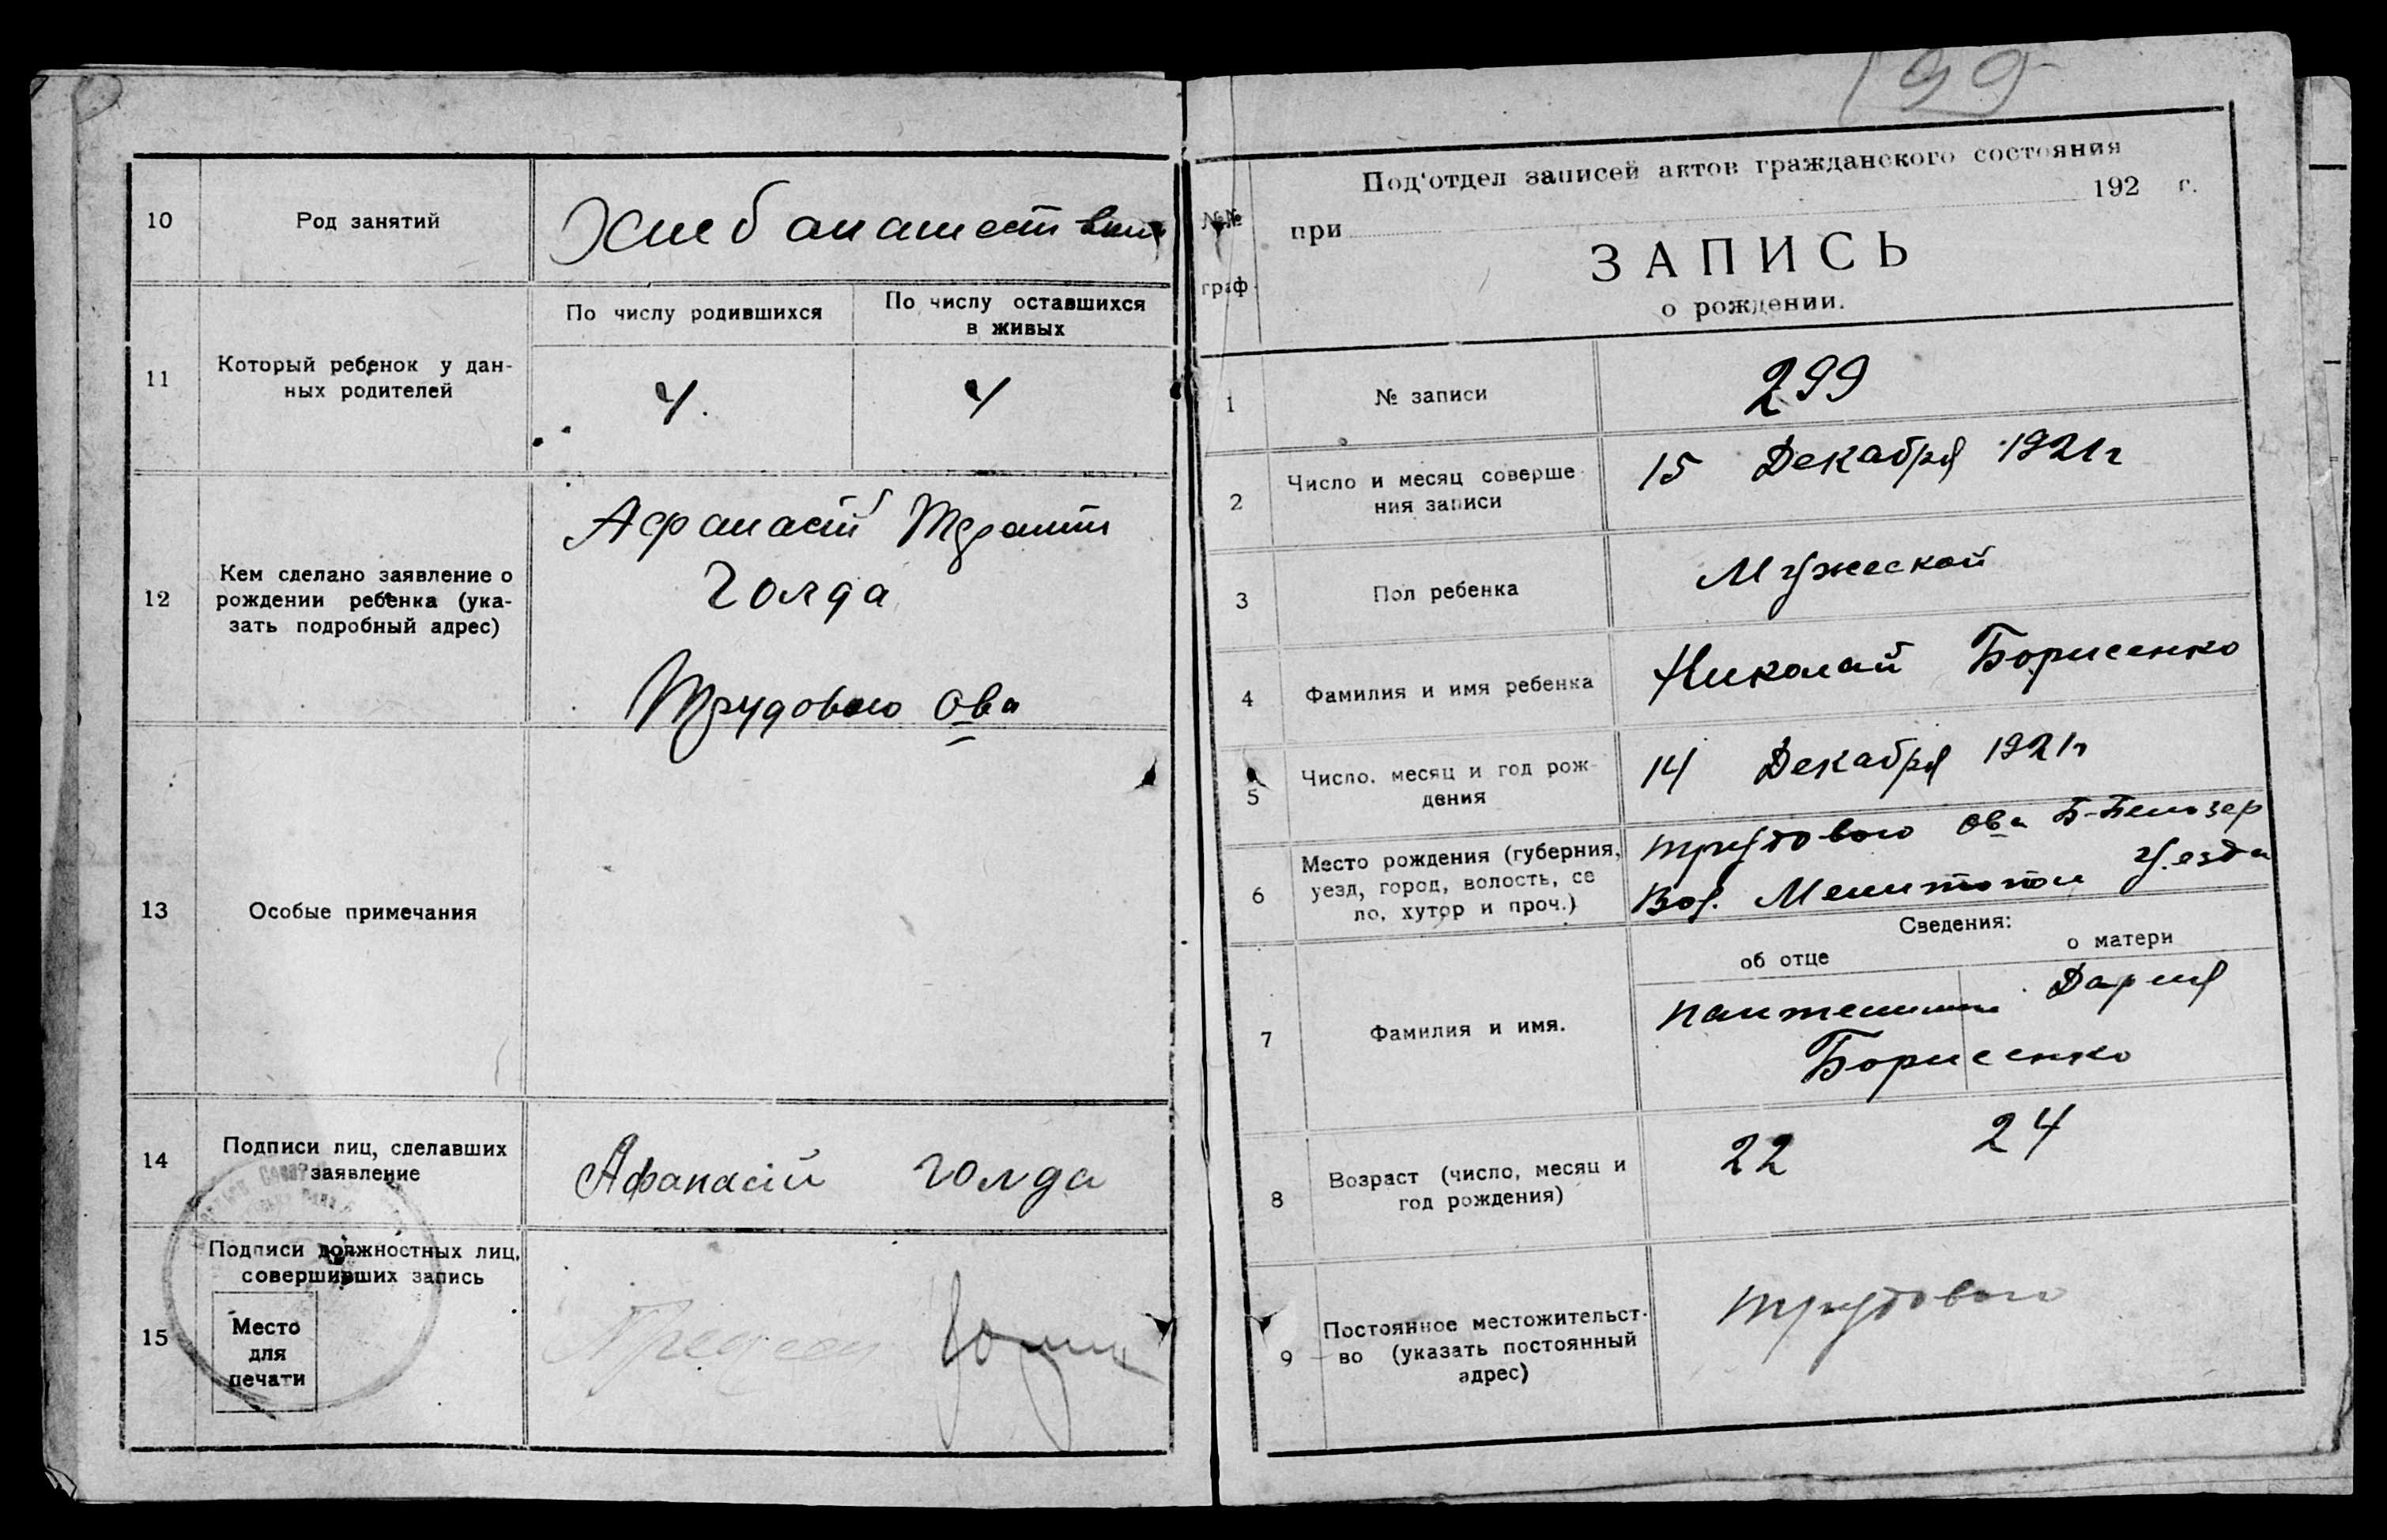 10 Род занятий
11 Который ребенок у дан-
ных родителей
По числу родившихся
По числу оставшихся
в живых
4.
4
12 Кем сделано заявление о
рождении ребенка (ука-
зать подробный адрес)
Голда
Трудового ова
13 Особые примечания
14 Подписи лиц, сделавших
заявление
Афанасій Голда
15 Подписи должностных лиц,
совершивших запись
Место
для
печати
199
№№
граф.
Под'отдел записей актов гражданского состояния
при 192 г.
ЗАПИСЬ
о рождении.
1 № записи
299
2 Число и месяц соверше-
ния записи
15 Декабря 1921г
3 Пол ребенка
Мужеской
4 Фамилия и имя ребенка
Николай Борисенко
5 Число, месяц и год рож-
дения
14 Декабря 1921г
6 Место рождения (губерния,
уезд, город, волость, се
ло, хутор и проч.)
Трудового ова Б-Белозер
Вол. Мелитопол Уезда
Сведения:
об отце
о матери
7 Фамилия и имя.
Дария
Борисенко
8 Возраст (число, месяц и
год рождения)
22
24
9 Постоянное местожительст-
во (указать постоянный
адрес)
Трудового